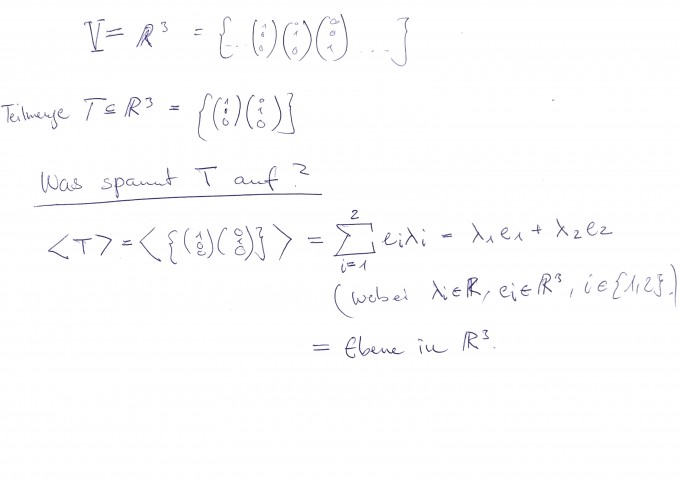 V = ℝ³ = {... (1 0 0) (0 1 0) (0 0 1) ...}
Teilmenge T ⊆ ℝ³ = {(1 0 0) (0 1 0)}
Was spannt T auf?
<T> = <{(1 0 0) (0 1 0)}> = ∑_{i=1}^{2} eᵢλᵢ = λ₁e₁ + λ₂e₂
(wobei λᵢ∈ℝ, eᵢ∈ℝ³, i∈{1,2}.)
= Ebene in ℝ³.